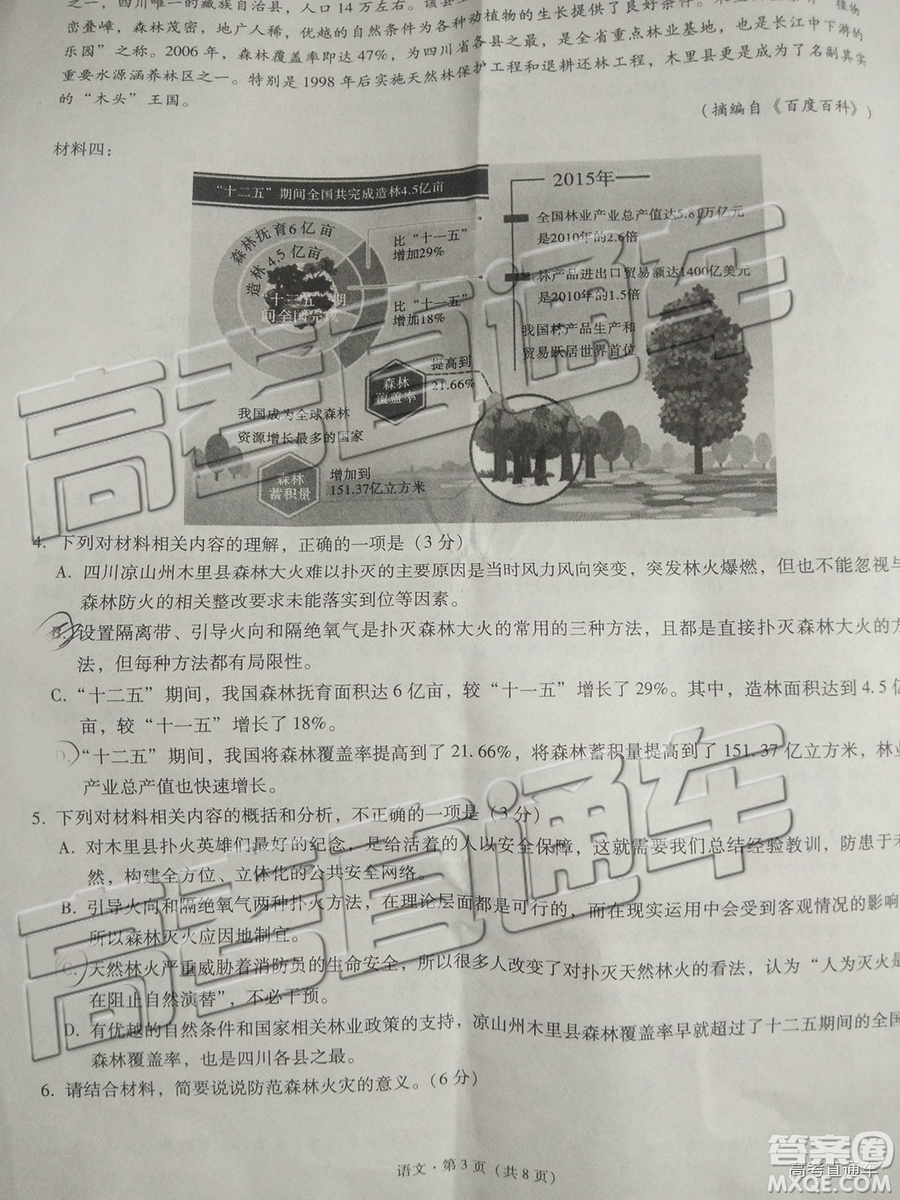 之一，四川唯一的藏族自治县，人口 14 万左右。
峦叠嶂，森林茂密，地广人稀，优越的自然条件为各种动植物的生长提供了良好条件。
乐园”之称。2006 年，森林覆盖率即达 47%，为四川省各县之最，是全省重点林业基地，也是长江中下游的
重要水源涵养林区之一。特别是 1998 年后实施天然林保护工程和退耕还林工程，木里县更是成为了名副其实
的“木头”王国。
（摘编自《百度百科》）
材料四：
“十二五”期间全国共完成造林4.5亿亩
森林抚育6亿亩
造林4.5亿亩
“十二五”期
间全国完成
比“十一五”
增加29%
比“十一五”
增加18%
森林
覆盖率
提高到
21.66%
我国成为全球森林
资源增长最多的国家
森林
蓄积量
增加到
151.37亿立方米
2015年
全国林业产业总产值达5.81万亿元
是2010年的2.6倍
林产品进出口贸易额达1400亿美元
是2010年的1.5倍
我国林产品生产和
贸易跃居世界首位
4. 下列对材料相关内容的理解，正确的一项是（3 分）
A. 四川凉山州木里县森林大火难以扑灭的主要原因是当时风力风向突变，突发林火爆燃，但也不能忽视与
森林防火的相关整改要求未能落实到位等因素。
B. 设置隔离带、引导火向和隔绝氧气是扑灭森林大火的常用的三种方法，且都是直接扑灭森林大火的方
法，但每种方法都有局限性。
C. “十二五”期间，我国森林抚育面积达 6 亿亩，较“十一五”增长了 29%。其中，造林面积达到 4.5 亿
亩，较“十一五”增长了 18%。
D. “十二五”期间，我国将森林覆盖率提高到了 21.66%，将森林蓄积量提高到了 151.37 亿立方米，林业
产业总产值也快速增长。
5. 下列对材料相关内容的概括和分析，不正确的一项是（3 分）
A. 对木里县扑火英雄们最好的纪念，是给活着的人以安全保障，这就需要我们总结经验教训，防患于未
然，构建全方位、立体化的公共安全网络。
B. 引导火向和隔绝氧气两种扑火方法，在理论层面都是可行的，而在现实运用中会受到客观情况的影响，
所以森林灭火应因地制宜。
C. 天然林火严重威胁着消防员的生命安全，所以很多人改变了对扑灭天然林火的看法，认为“人为灭火是
在阻止自然演替”，不必干预。
D. 有优越的自然条件和国家相关林业政策的支持，凉山州木里县森林覆盖率早就超过了十二五期间的全国
森林覆盖率，也是四川各县之最。
6. 请结合材料，简要说说防范森林火灾的意义。（6 分）
语文·第 3 页（共 8 页）
高考直通车
高考直通车
答案圈
高考直通车
MXQE.COM